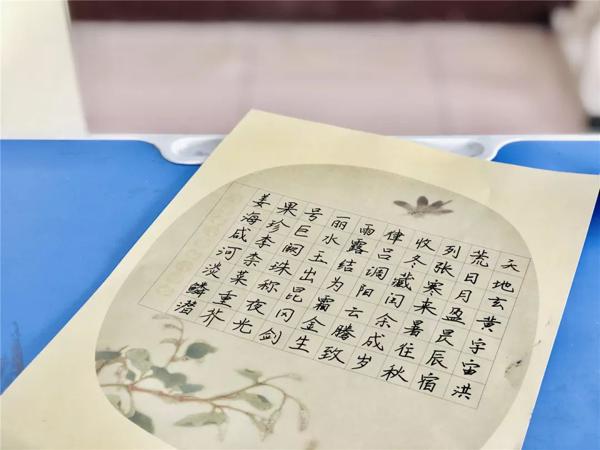 天地玄黄宇宙洪
荒日月盈昃辰宿
列张寒来暑往秋
收冬藏闰余成岁
律吕调阳云腾致
雨露结为霜金生
丽水玉出昆冈剑
号巨阙珠称夜光
果珍李柰菜重芥
姜海咸河淡鳞潜